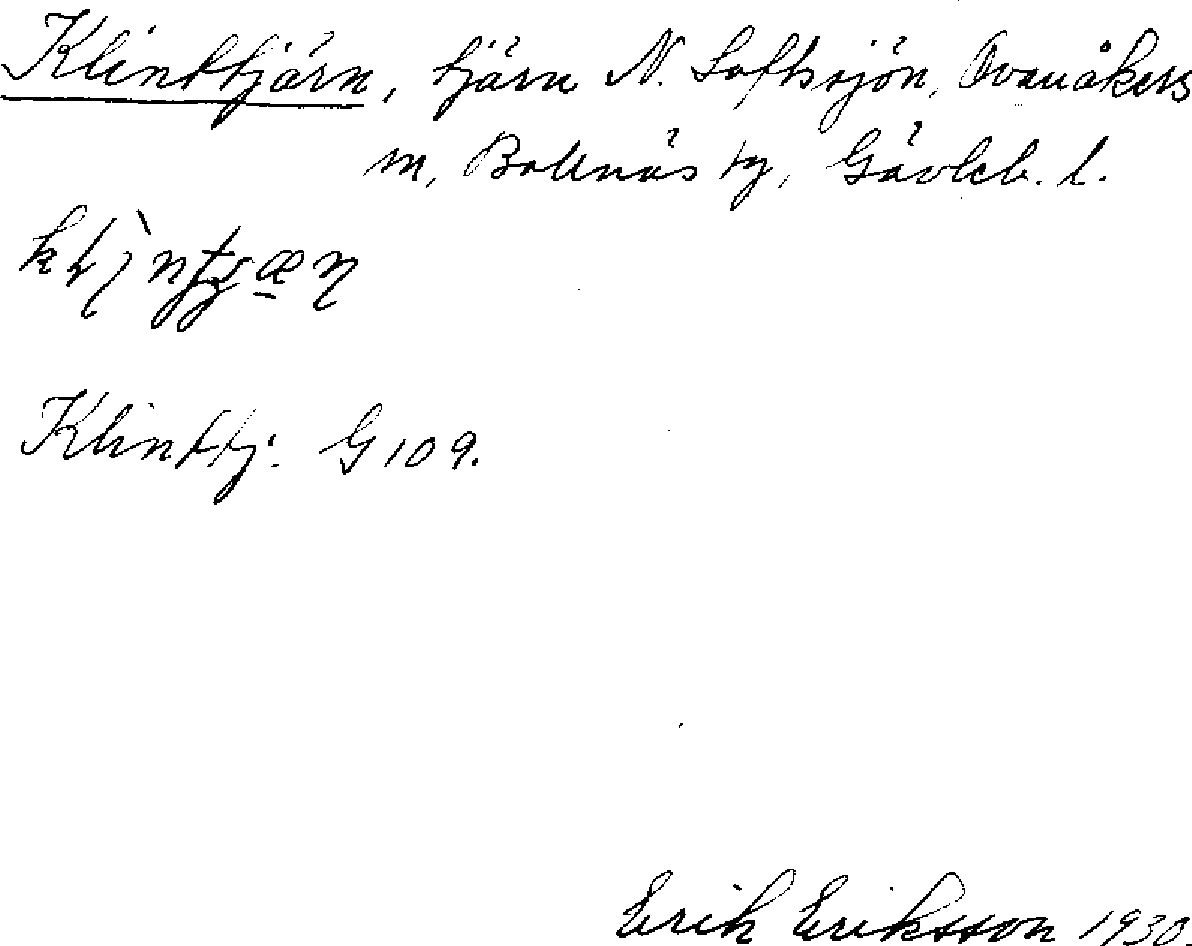 Klinttjärn, tjärn N. Loftssjön, Ovanåkers
m, Bollnäs tg, Gävleb. l.
Klinttj. G 109.
Erik Eriksson 1930.